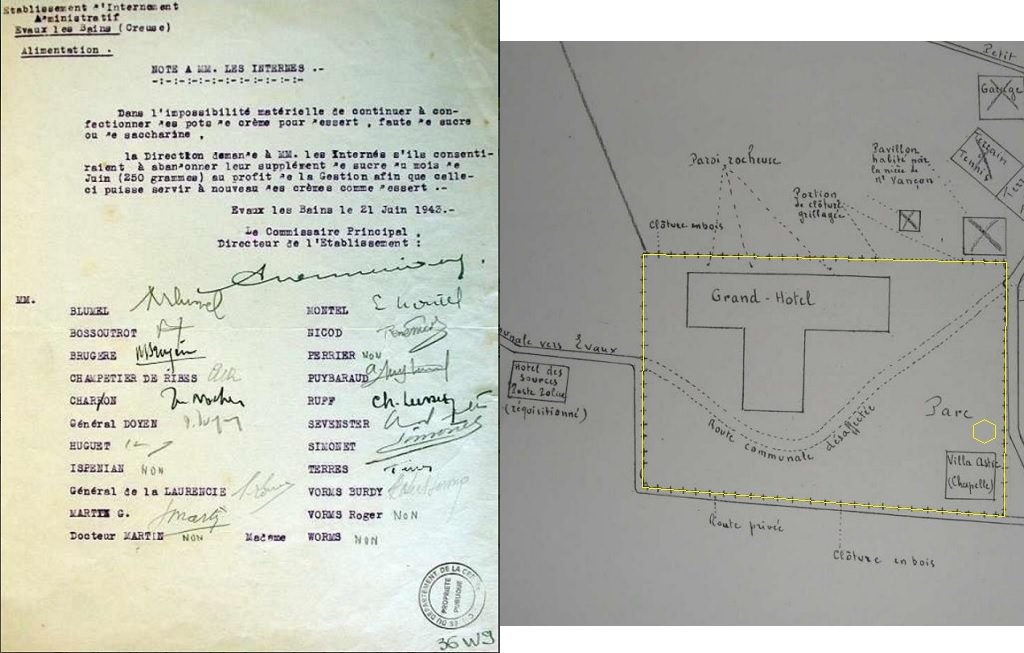 Etablissement d'Internement
Administratif
Evaux les Bains (Creuse)
Alimentation .
NOTE A MM. LES INTERNES .-
-:-:-:-:-:-:-:-:-:-:-
Dans l'impossibilité matérielle de continuer à con-
fectionner des pots de crème pour dessert , faute de sucre
ou de saccharine ,
la Direction demande à MM. les Internés s'ils consenti-
raient à abandonner leur supplément de sucre du mois de
Juin (250 grammes) au profit de la Gestion afin que celle-
ci puisse servir à nouveau des crèmes comme dessert .-
Evaux les Bains le 21 Juin 1943.-
Le Commissaire Principal ,
Directeur de l'Etablissement :
MM.
BLUMEL
MONTEL
BOSSOUTROT
NICOD
BRUGERE
PERRIER NON
CHAMPETIER DE RIBES
PUYBARAUD
CHARRON
RUFF
Général DOYEN
SEVENSTER
HUGUET
SIMONET
ISPENIAN NON
TERRES
Général de la LAURENCIE
VORMS BURDY
MARTIN G.
VORMS Roger NON
Docteur MARTIN NON
Madame WORMS NON
PROPRIÉTÉ
PUBLIQUE
36 W 9
Petit
Garage
Terrain
Tennis
Terr
Pavillon
habité par
la nièce de
Mr Vançon
Paroi rocheuse
Portion
de clôture
grillagée
Clôture en bois
Grand-Hôtel
unale vers Evaux
Hôtel des
sources
Poste Police
(réquisitionné)
Route communale désaffectée
Parc
Villa
(Chapelle)
Route privée
Clôture en bois